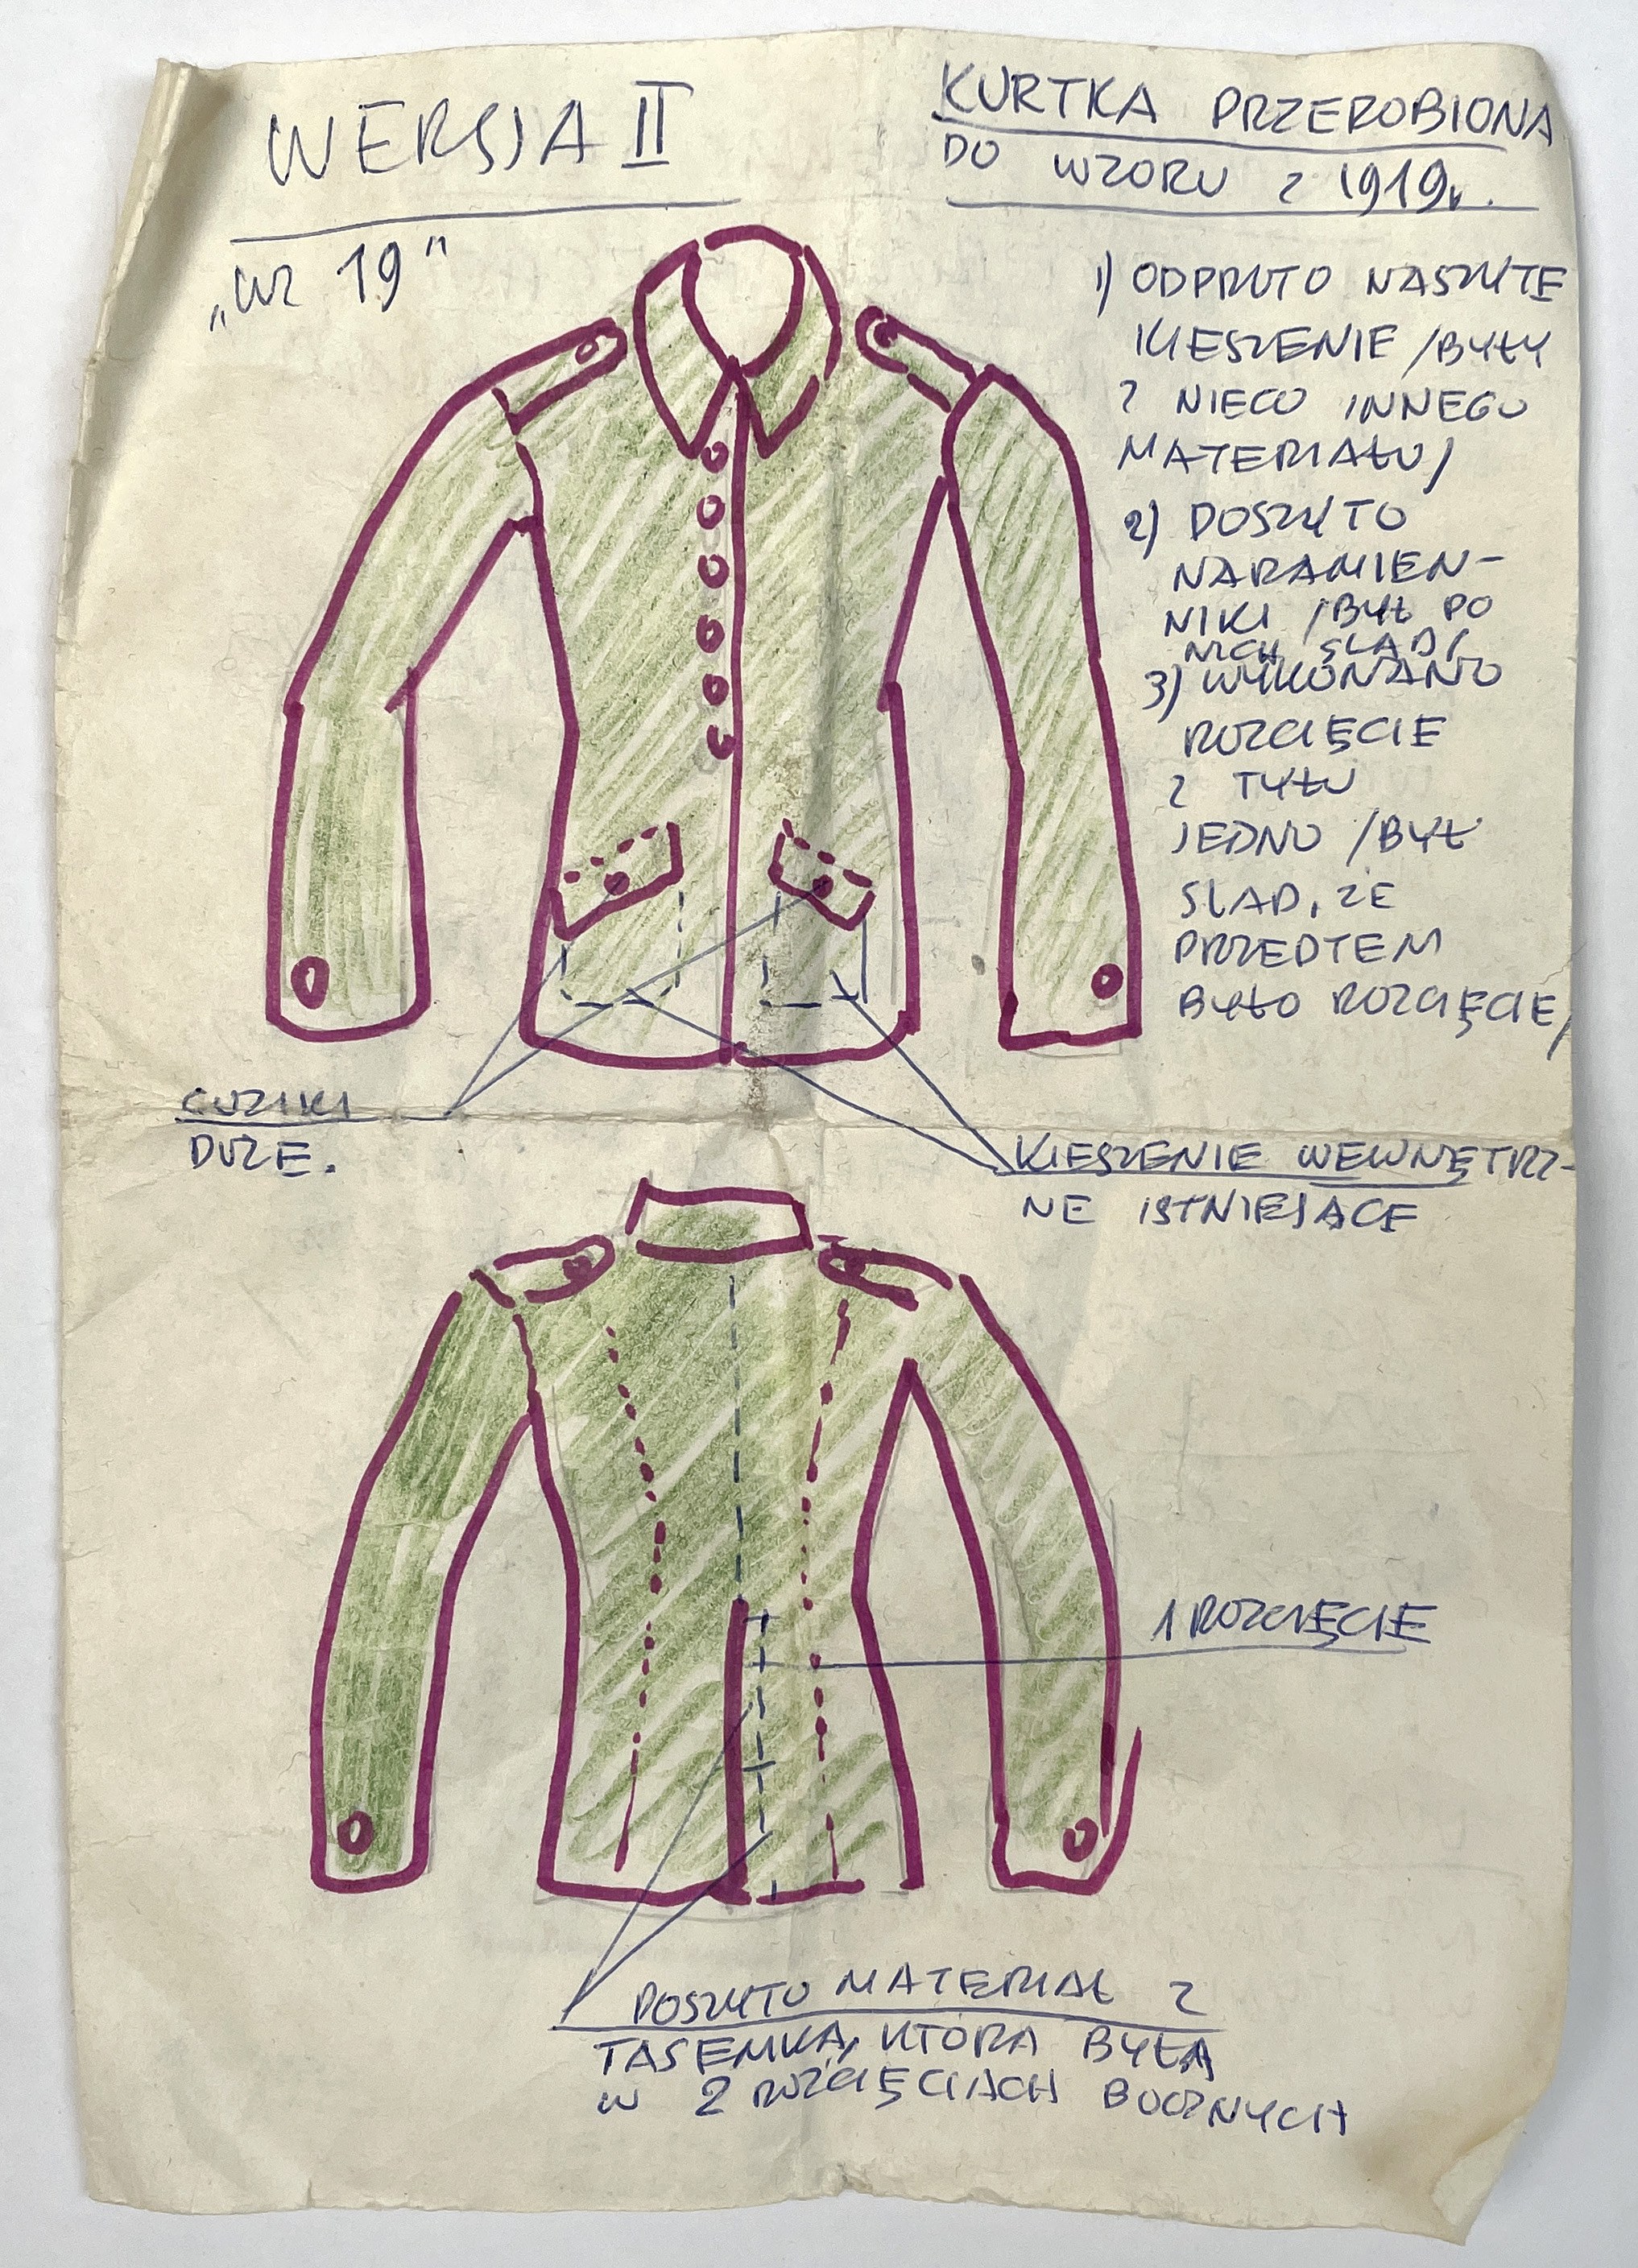 WERSJA II
„WZ 19"
KURTKA PRZEROBIONA
DO WZORU Z 1919r.
1) ODPRUTO NASZYTE
KIESZENIE /BYŁY
Z NIECO INNEGO
MATERIAŁU/
2) DOSZYTO
NARAMIEN-
NIKI /BYŁ PO
NICH ŚLAD/
3) WYKONANO
ROZCIĘCIE
Z TYŁU
JEDNO /BYŁ
ŚLAD, ŻE
PRZEDTEM
BYŁO ROZCIĘCIE/
GUZIKI
DUŻE.
KIESZENIE WEWNĘTRZ-
NE ISTNIEJĄCE
1 ROZCIĘCIE
DOSZYTO MATERIAŁ Z
TASEMKĄ, KTÓRA BYŁA
W 2 ROZCIĘCIACH BOCZNYCH